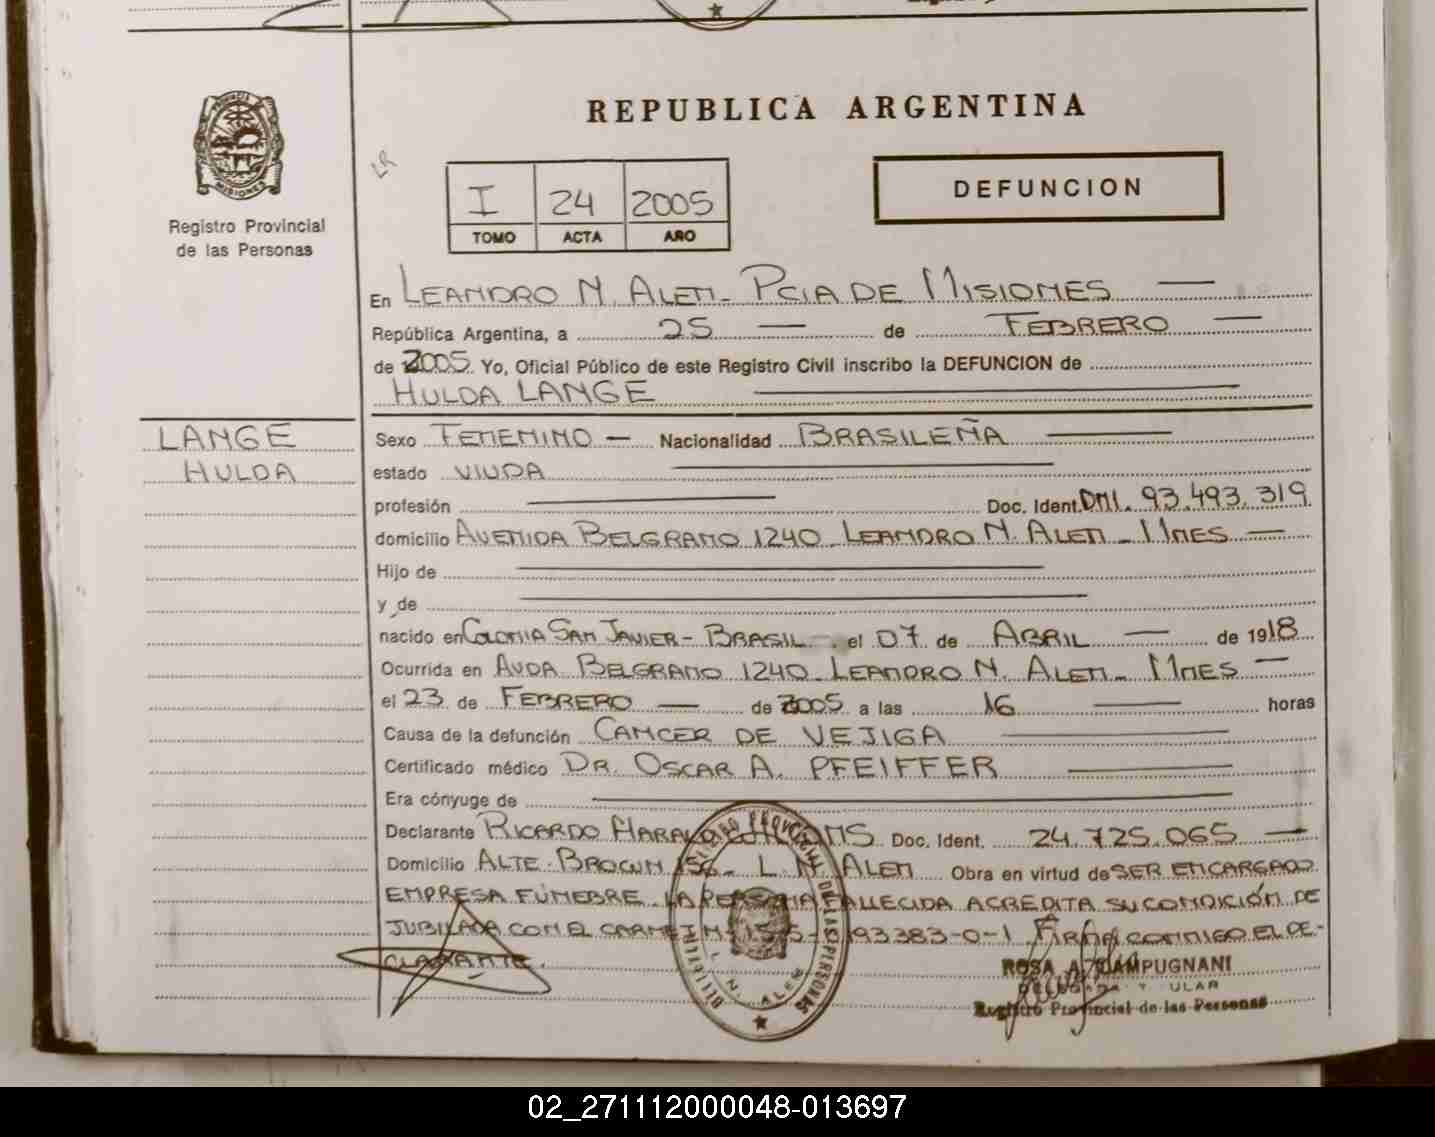 REPUBLICA ARGENTINA
PROVINCIA DE
MISIONES
Registro Provincial
de las Personas
LR
I 24 2005
TOMO ACTA AÑO
DEFUNCION
En LEANDRO N. ALEM - PCIA DE MISIONES
República Argentina, a 25 de FEBRERO
de 2005 Yo, Oficial Público de este Registro Civil inscribo la DEFUNCION de
HULDA LANGE
LANGE
HULDA
Sexo FEMENINO Nacionalidad BRASILEÑA
estado VIUDA
profesión Doc. Ident. DNI. 93.493.319
domicilio AVENIDA BELGRANO 1240 - LEANDRO N. ALEM - MNES
Hijo de
y de
nacido en COLONIA SAN JAVIER - BRASIL el 07 de ABRIL de 1918
Ocurrida en AVDA BELGRANO 1240 - LEANDRO N. ALEM - MNES
el 23 de FEBRERO de 2005 a las 16 horas
Causa de la defunción CANCER DE VEJIGA
Certificado médico DR. OSCAR A. PFEIFFER
Era cónyuge de
Declarante RICARDO Doc. Ident. 24.725.065
Domicilio ALTE. BROWN 156 - L. N. ALEM Obra en virtud de SER ENCARGADO
EMPRESA FÚNEBRE. LA PERSONA FALLECIDA ACREDITA SU CONDICIÓN DE
JUBILADA CON EL CARNET N° 93383-0-1 FIRMA CONMIGO EL DE-
CLARANTE.
REGISTRO PROVINCIAL DE LAS PERSONAS
L. N. ALEM
ROSA A. ZAMPUGNANI
DELEGADA T ULAR
Registro Provincial de las Personas
02_271112000048-013697